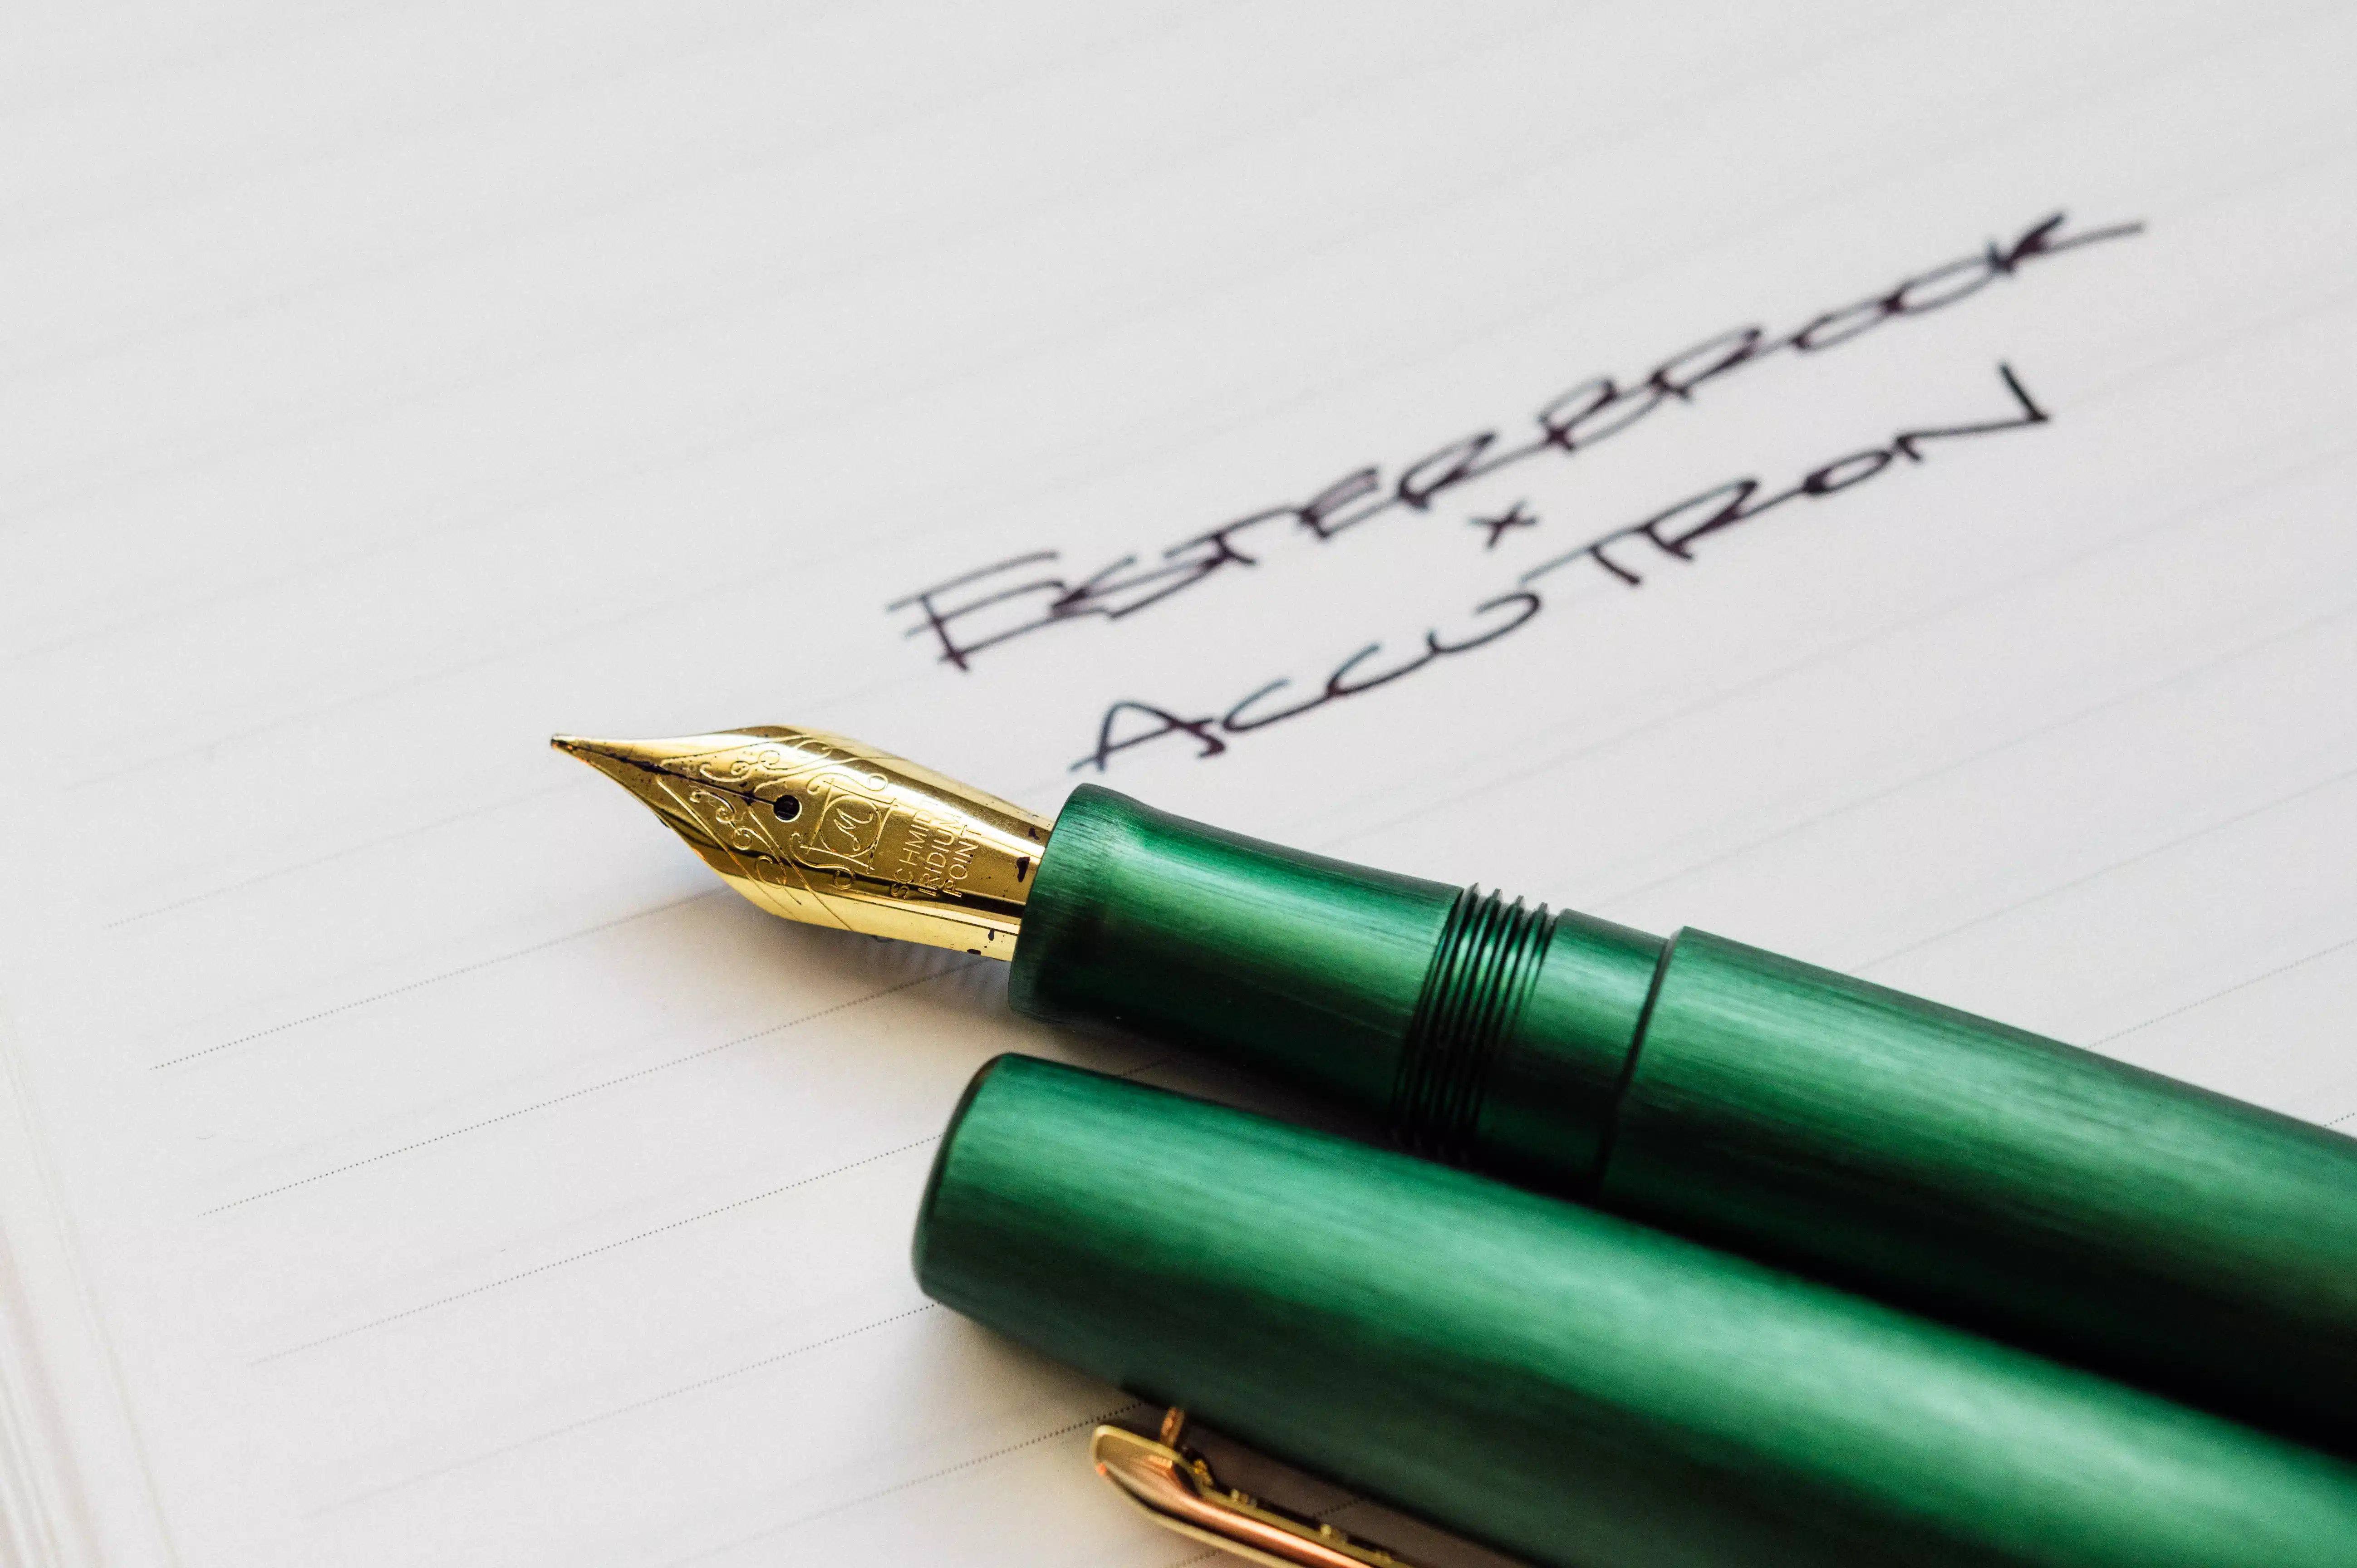 ESTERBROOK
x
ACCUTRON
SCHMIDT
IRIDIUM
POINT